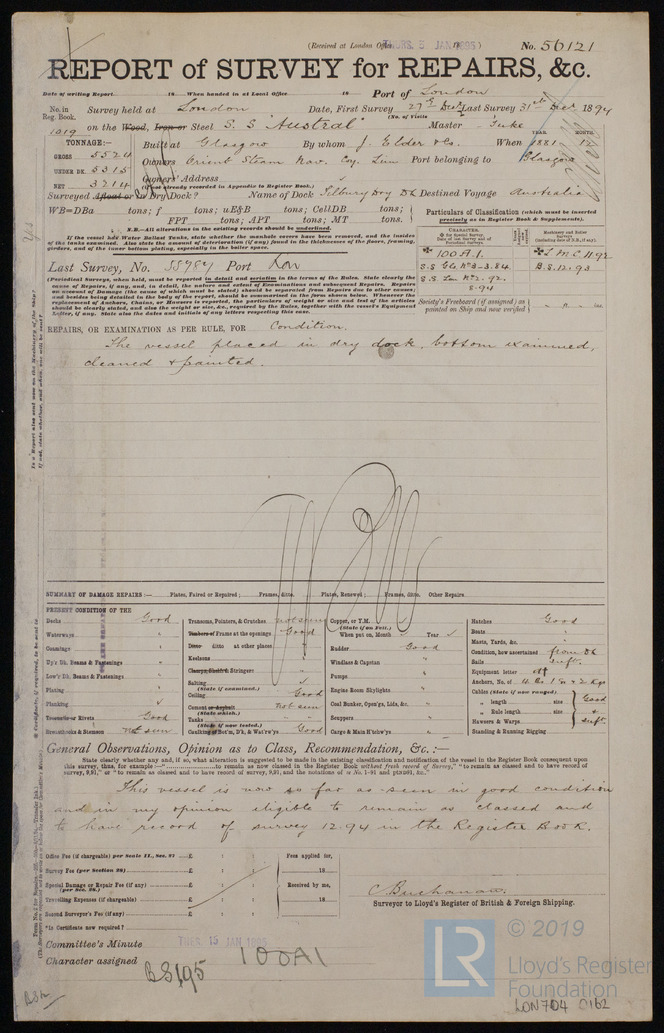 (Received at London Office THURS. 3 JAN 1895)
No. 56121
REPORT of SURVEY for REPAIRS, &c.
Date of writing Report 18 When handed in at Local Office 18 Port of London
No. in Reg. Book. Survey held at London Date, First Survey 27th Dec Last Survey 31st Dec 1894
(No. of Visits
1019 on the Wood, Iron or Steel S.S. "Austral" Master Tuke
TONNAGE:—
GROSS 5524
UNDER DK. 5315
NET 3214
Built at Glasgow By whom J. Elder & Co. When YEAR. 1881 MONTH. 12
Owners Orient Steam Nav. Coy. Lim Port belonging to Glasgow
Owners' Address
(if not already recorded in Appendix to Register Book.)
Surveyed Afloat or in Dry Dock? Name of Dock Tilbury Dry Dk Destined Voyage Australia
WB=DBa tons; f tons; uE&B tons; CellDB tons;
FPT tons; APT tons; MT tons.
N.B.—All alterations in the existing records should be underlined.
If the vessel has Water Ballast Tanks, state whether the manhole covers have been removed, and the insides
of the tanks examined. Also state the amount of deterioration (if any) found in the thicknesses of the floors, framing,
girders, and of the inner bottom plating, especially in the boiler space.
Particulars of Classification (which must be inserted
precisely as in Register Book & Supplements).
CHARACTER.
100A.1.
S.S. Gls. No 3-3.84
S.S. Lon No 2-.92.
8.94
L.M.C. 11.92
B.S. 12.93
Society's Freeboard (if assigned) as
painted on Ship and now verified
Last Survey, No. 55987 Port Lon
(Periodical Surveys, when held, must be reported in detail and seriatim in the terms of the Rules. State clearly the
cause of Repairs, if any, and, in detail, the nature and extent of Examinations and subsequent Repairs. Repairs
on account of Damage (the cause of which must be stated) should be separated from Repairs due to other causes;
and besides being detailed in the body of the report, should be summarised in the form shown below. Whenever the
replacement of Anchors, Chains, or Hawsers is reported, the particulars of weight or size and test of the articles
should be clearly stated, and also the size, &c., required by the Rules, together with the vessel's Equipment
Letter, if any. State also the dates and initials of any letters respecting this case.
REPAIRS, OR EXAMINATION AS PER RULE, FOR Condition.
The vessel placed in dry dock, bottom examined,
cleaned & painted.
SUMMARY OF DAMAGE REPAIRS:— Plates, Faired or Repaired; Frames, ditto. Plates, Renewed; Frames, ditto. Other Repairs
PRESENT CONDITION OF THE
Decks Good
Waterways "
Coamings "
Up'r Dk. Beams & Fastenings "
Low'r Dk. Beams & Fastenings "
Plating "
Planking
Treenails or Rivets Good
Breasthooks & Stemson not seen
Transoms, Pointers, & Crutches not seen
Timbers or Frames at the openings Good
Ditto ditto at other places "
Keelsons "
Clamps, Shelfs & Stringers "
Salting
(State if examined.)
Ceiling Good
Cement or Asphalt not seen
(State which.)
Tanks
(State if now tested.)
Caulking of Bot'm, D'k, & Wat'rw'ys Good
Copper, or Y.M.
(State if on Felt.)
When put on, Month Year
Rudder Good
Windlass & Capstan "
Pumps "
Engine Room Skylights "
Coal Bunker, Open'gs, Lids, &c. "
Scuppers "
Cargo & Main H'tchw'ys "
Hatches Good
Boats "
Masts, Yards, &c. "
Condition, how ascertained from Dk
Sails suff.
Equipment letter
Anchors, No. of
Cables (State if now ranged)
" length size Good
" Rule length size
Hawsers & Warps suff.
Standing & Running Rigging
General Observations, Opinion as to Class, Recommendation, &c.:—
State clearly whether any and, if so, what alteration is suggested to be made in the existing classification and notification of the vessel in the Register Book consequent upon
this survey, thus, for example—" to remain as now classed in the Register Book without fresh record of Survey," "to remain as classed and to have record of
survey, 9,91," or "to remain as classed and to have record of survey, 9,91, and the notations of ss No. 1-91 and ptND91, &c."
This vessel is now so far as seen in good condition
and in my opinion eligible to remain as classed and
to have record of survey 12.94 in the Register Book.
Office Fee (if chargeable) per Scale II., Sec. 27 £ : :
Survey Fee (per Section 28) £ : :
Special Damage or Repair Fee (if any) (per Sec. 28.) £ : :
Travelling Expenses (if chargeable) £ : :
Second Surveyor's Fee (if any) £ : :
Fees applied for,
18
Received by me,
18
C. Buchanan.
Surveyor to Lloyd's Register of British & Foreign Shipping.
*Is Certificate now required?
Committee's Minute TUES. 15 JAN 1895
Character assigned 100A1
BS195
LR © 2019
Lloyd's Register
Foundation
LON704 0162